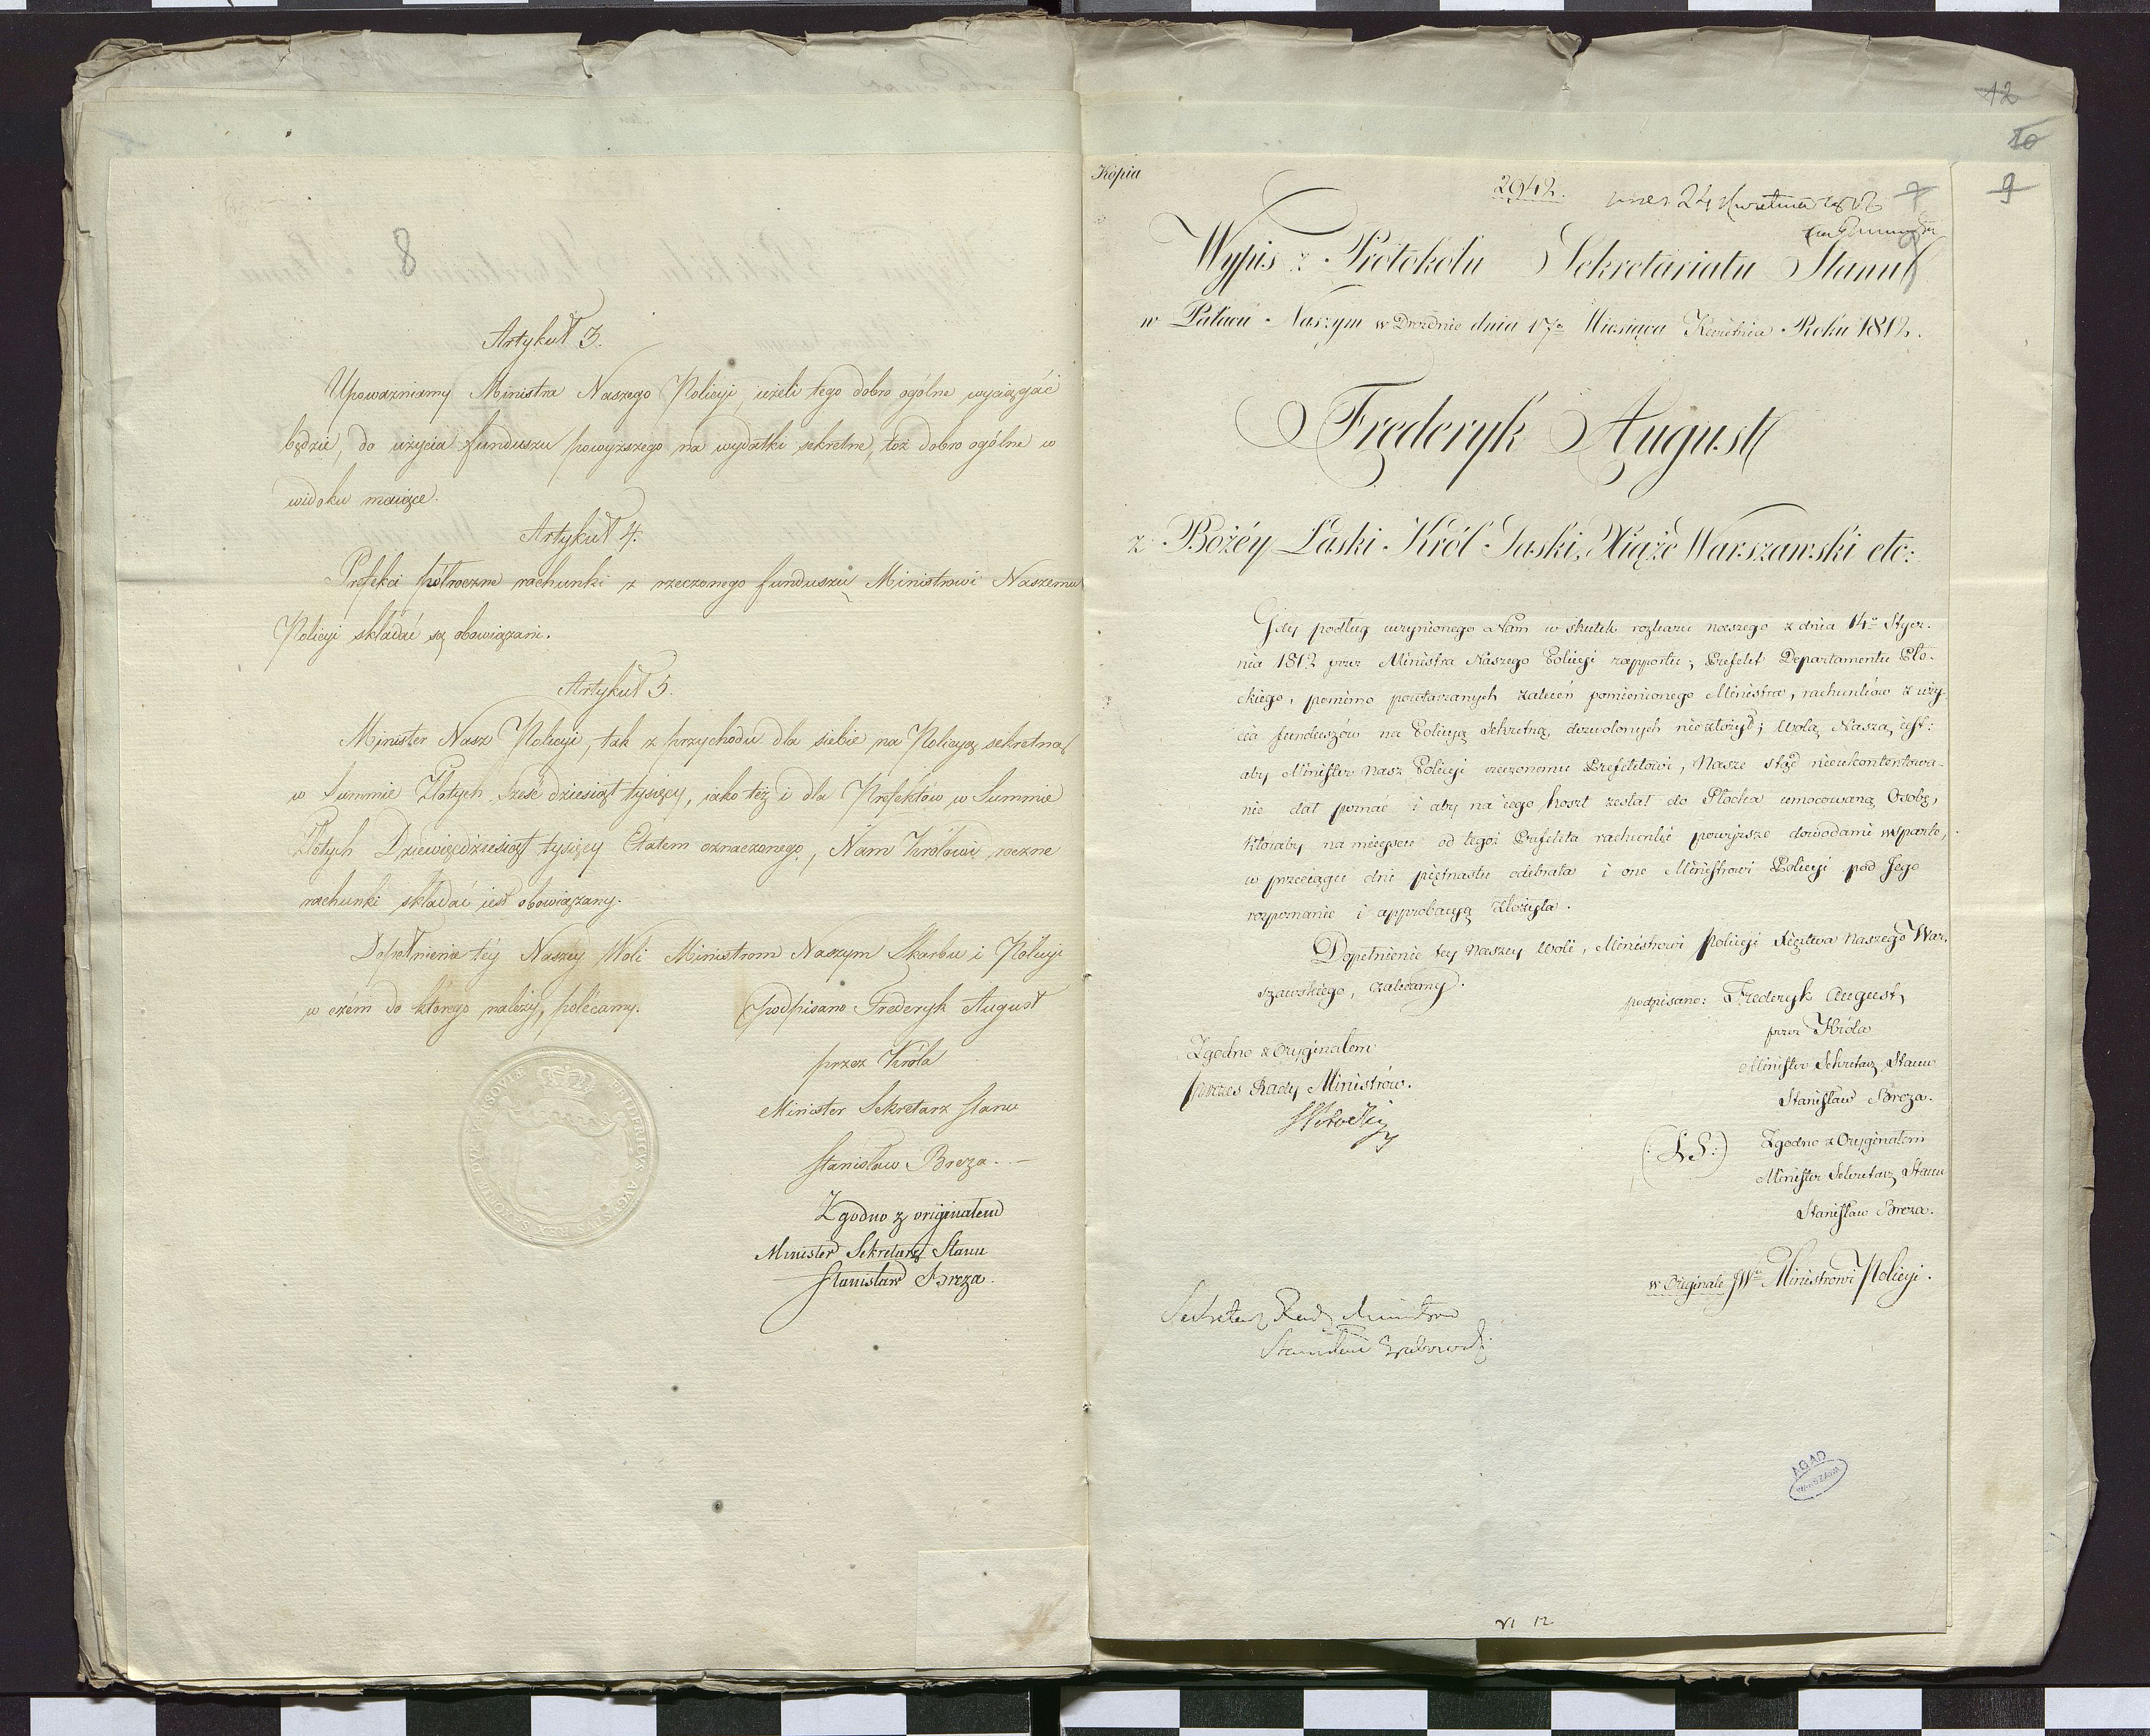 8
Artykuł 3.
Upoważniamy Ministra Naszego Policyi, ieżeli tego dobro ogólne wyciągać
będzie, do użycia funduszu powyższego na wydatki sekretne, toż dobro ogólne w
widoku maiące.
Artykuł 4.
Prefekci półroczne rachunki z rzeczonego funduszu Ministrowi Naszemu
Policyi składać są obowiązani.
Artykuł 5.
Minister Nasz Policyi, tak z przychodu dla siebie na Policyą sekretną
w Summie Złotych Sześćdziesiąt tysięcy, iako też i dla Prefektów w Summie
Złotych Dziewięćdziesiąt tysięcy Etatem oznaczonego, Nam Królowi roczne
rachunki składać iest obowiązany.
Dopełnienie téy Naszéy Woli Ministrom Naszym Skarbu i Policyi
w czém do którego należy, polecamy.
(podpisano Frederyk August
przez Króla
Minister Sekretarz Stanu
Stanisław Breza. —
Zgodno z originałem
Minister Sekretarz Stanu
Stanisław Breza.
FRIDERICVS AVGVSTVS REX SAXON. DVX VARSOVIÆ
12
10
9
7
Kopia
2942.
24 Kwietnia 1812
Wypis z Protokółu Sekretariatu Stanu
w Pałacu Naszym w Dreźnie dnia 17go Miesiąca Kwietnia Roku 1812.
Frederyk August
z Bożéy Łaski Król Saski, Xiąże Warszawski etc:
Gdy podług uczynionego Nam w skutek rozkazu naszego z dnia 14o Stycz-
nia 1812 przez Ministra Naszego Policyi rapportu; Prefekt Departamentu Pło-
ckiego, pomimo powtarzanych zaleceń pomienionego Ministra, rachunków z uży-
cia funduszów na Policyą Sekretną, dozwolonych nie złożył; Wolą Naszą iest:
aby Minister Nasz Policyi rzeczonemu Prefektowi, Nasze stąd nieukontentowa-
nie dał poznać i aby na iego koszt zesłał do Płocka umocowaną Osobę,
któraby na mieyscu od tegoż Prefekta rachunki powyższe dowodami wsparte,
w przeciągu dni piętnastu odebrała i one Ministrowi Policyi pod Jego
rozpoznanie i approbacyą złożyła.
Dopełnienie tey Naszey Woli, Ministrowi Policyi Xięstwa Naszego War-
szawskiego, zalecamy.
podpisano: Frederyk August,
przez Króla
Minister Sekretarz Stanu
Stanisław Breza.
(: L.S :)
Zgodno z Oryginałem
Minister Sekretarz Stanu
Stanisław Breza.
Zgodno z Oryginałem
Prezes Rady Ministrów.
w Oryginale JWu Ministrowi Policyi.
Sekretarz Rady Ministrów
Stanisław Grabowski
AGAD
WARSZAWA
VI 12